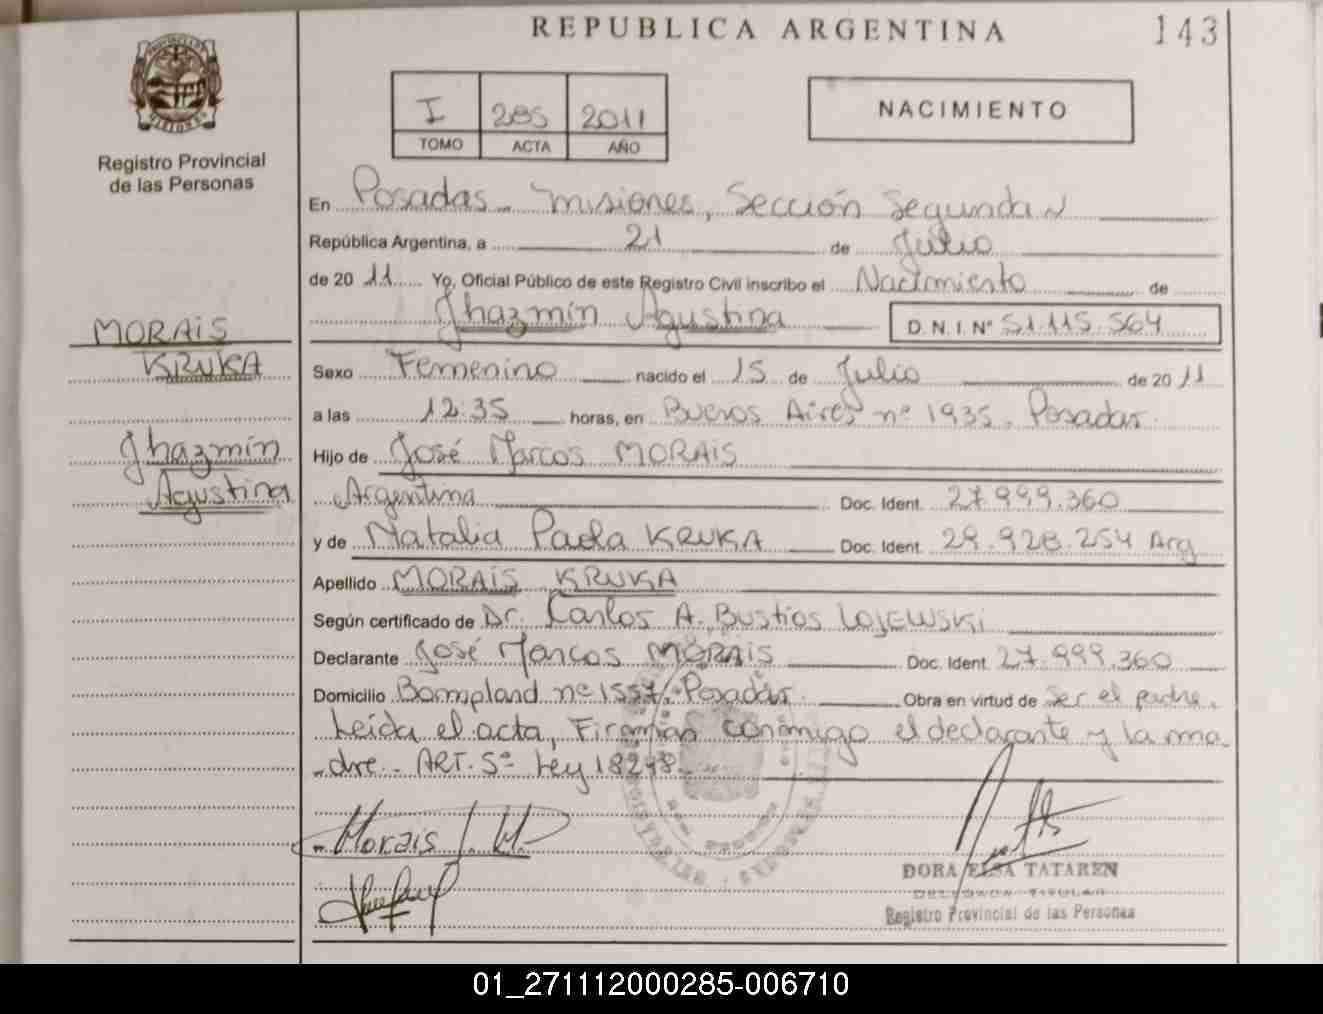 REPUBLICA ARGENTINA
143
PROVINCIA DE MISIONES
Registro Provincial
de las Personas
I 285 2011
TOMO ACTA AÑO
NACIMIENTO
En Posadas - Misiones, Sección Segunda
República Argentina, a 21 de Julio
de 2011 Yo, Oficial Público de este Registro Civil inscribo el Nacimiento de
Jhazmín Agustina D.N.I. Nº 51.115.564
MORAIS
KRUKA
Jhazmín
Agustina
Sexo Femenino nacido el 15 de Julio de 2011
a las 12:35 horas, en Buenos Aires nº 1935. Posadas.
Hijo de José Marcos MORAIS
Argentina Doc. Ident. 27.999.360
y de Natalia Paola KRUKA Doc. Ident. 29.928.254 Arg
Apellido MORAIS KRUKA
Según certificado de Dr. Carlos A. Bustios LOJEWSKI
Declarante José Marcos MORAIS Doc. Ident. 27.999.360
Domicilio Bompland nº 1557. Posadas. Obra en virtud de Ser el padre.
Leída el acta, Firman conmigo el declarante y la ma-
dre - ART. 5º Ley 18248.-
Morais J. M.
DORA ELSA TATAREN
DELEGADA TITULAR
Registro Provincial de las Personas
01_271112000285-006710